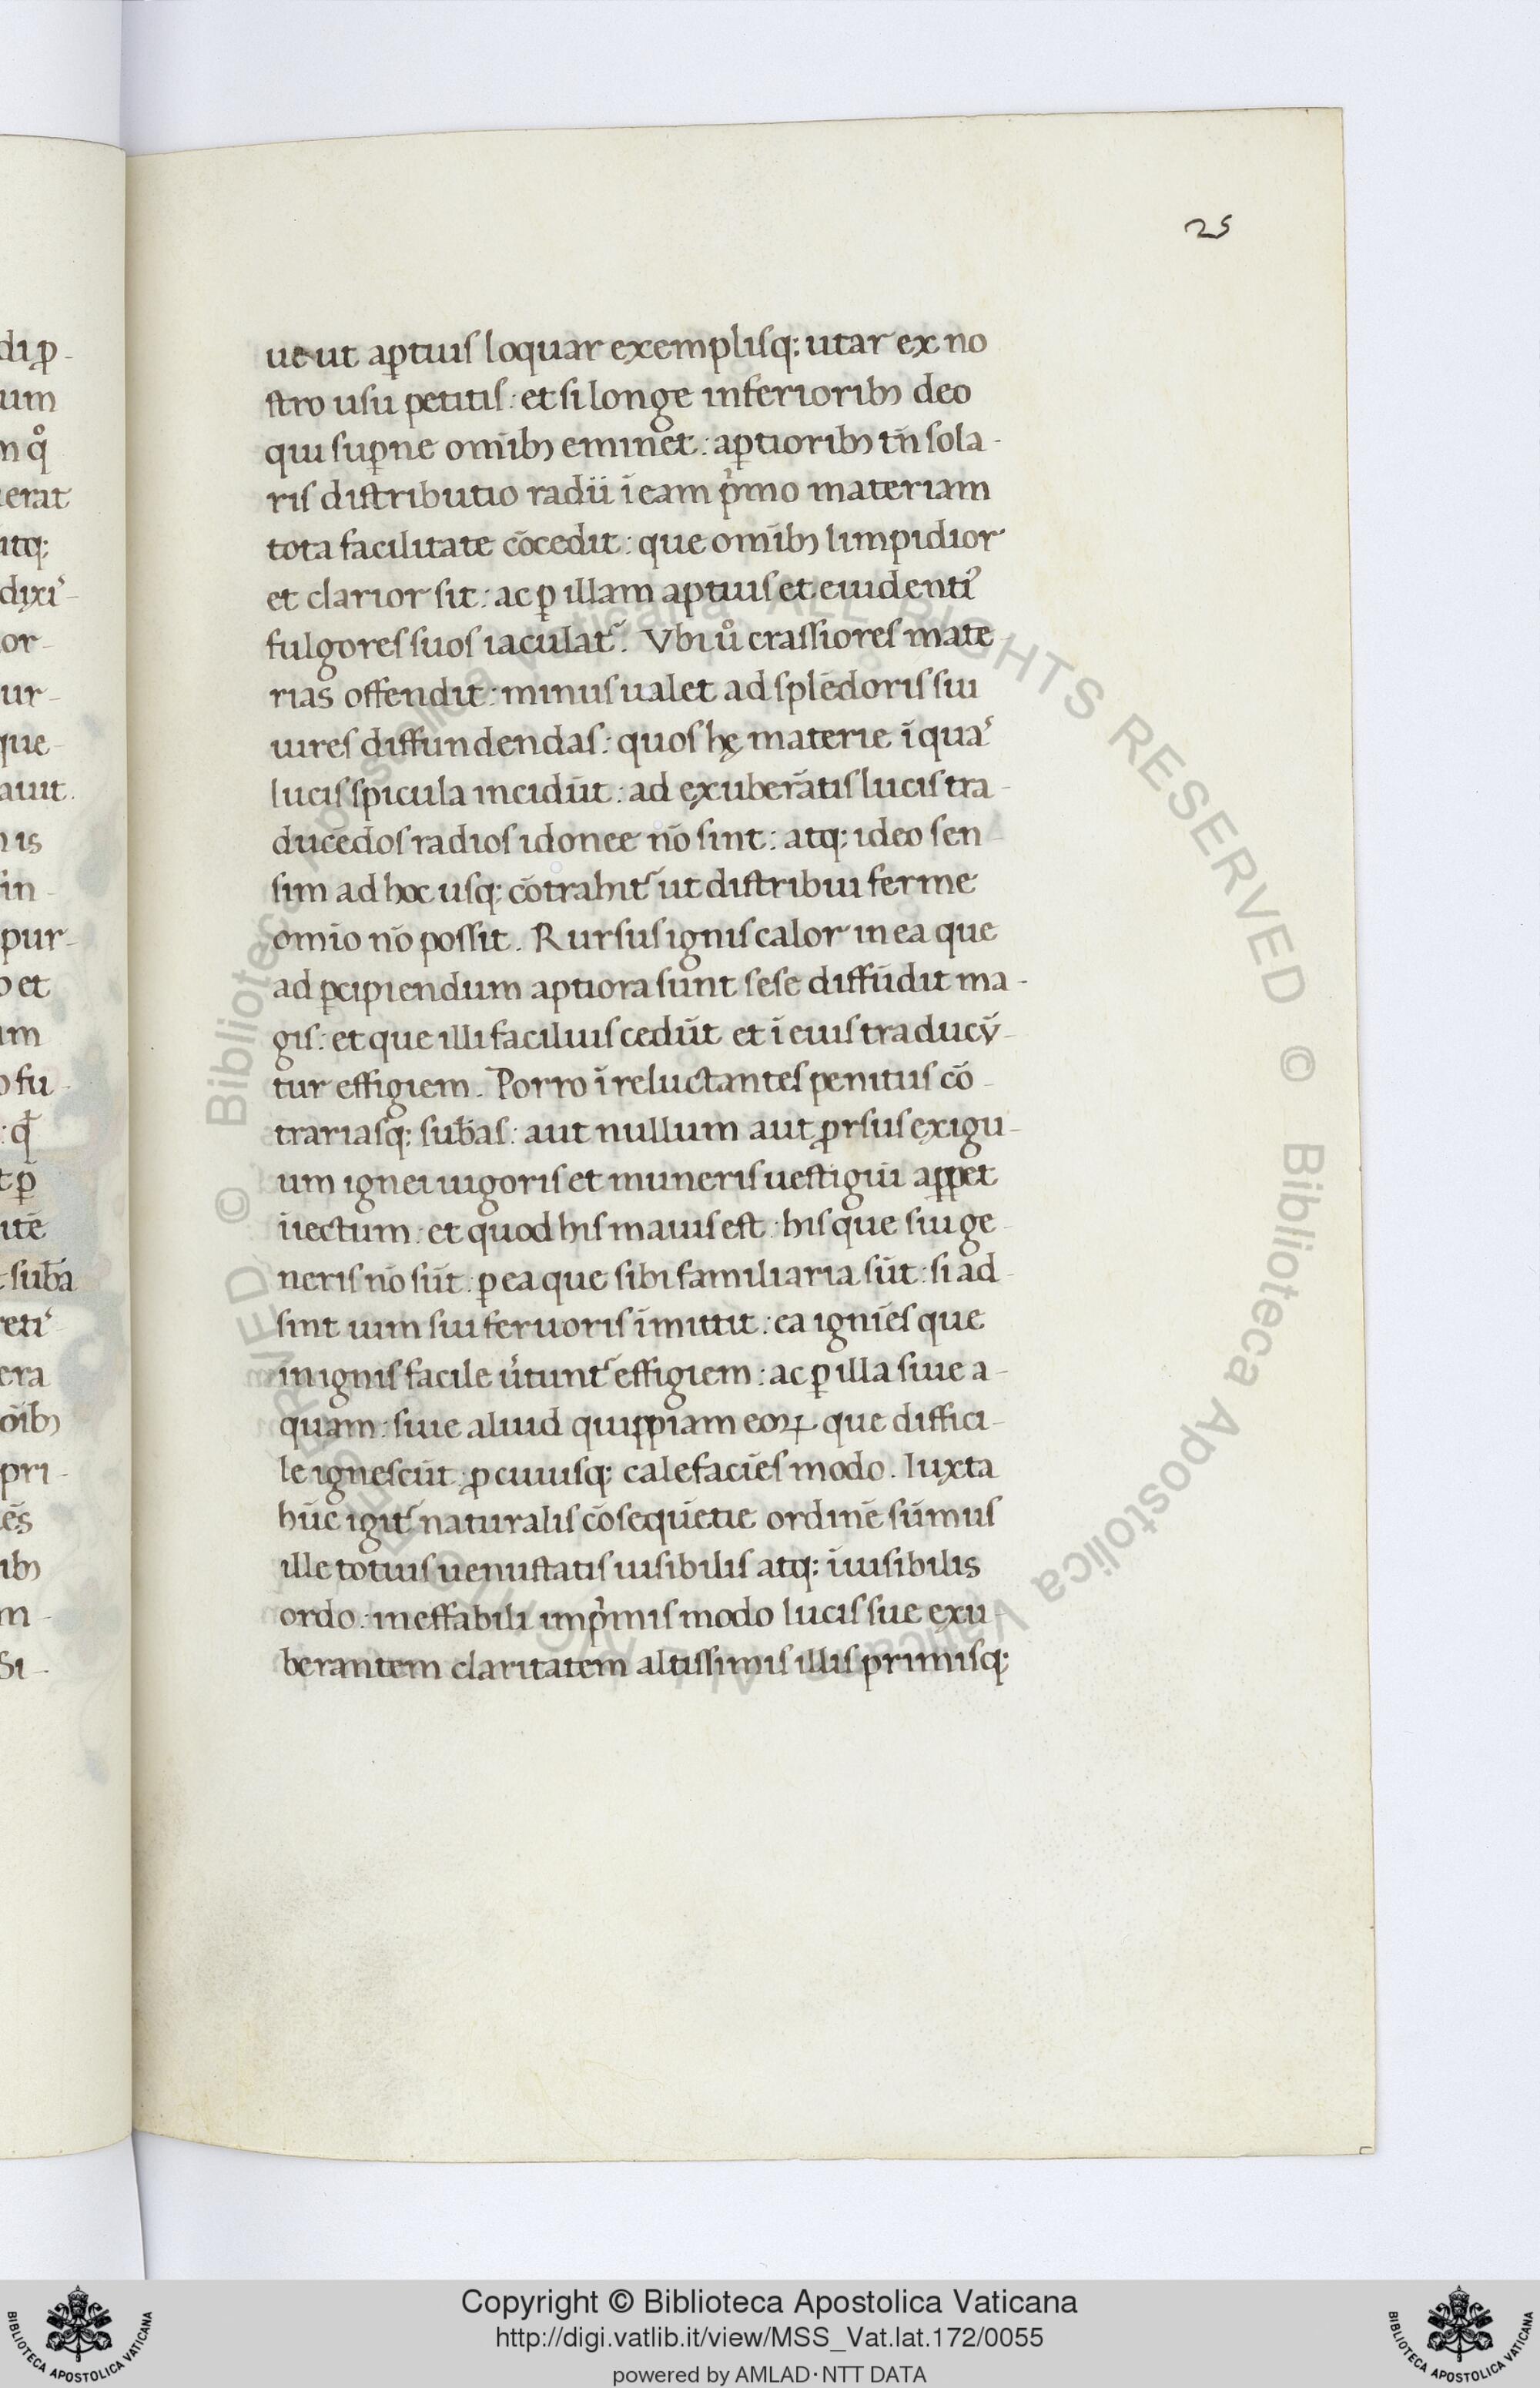 25
ue ut aptius loquar exemplisq; utar ex no
stro usu petitis: et si longe inferiorib₃ deo
qui sup̱ne omīb₃ eminet: aptiorib₃ tn̄ sola-
ris distributio radii ī eam p̍mo materiam
tota facilitate cōcedit: que omīb₃ limpidior
et clarior sit: ac ꝑ illam aptius et euidentı᷒
fulgores suos iaculat᷒. Vbi uͦ crassiores mate
rias offendit: minus ualet ad splēdoris sui
uires diffundendas: quos hę materie ī quaˢ
lucis spicula incidūt: ad exuberātis lucis tra-
ducēdos radios idonee nō sint: atq; ideo sen
sim ad hoc usq; cōtrahit᷒ ut distribui ferme
omīo nō possit. Rursus ignis calor in ea que
ad ꝑcipiendum aptiora sunt sese diffūdit ma-
gis: et que illi facilius cedūt et ī eius traducū-
tur effigiem. Porro ī reluctantes penitus cō-
trariasq; sub̄as: aut nullum aut ꝓrsus exigu-
um ignei uigoris et muneris uestigiū apꝑet
īiectum: et quod his maius est: his que sui ge
neris nō sūt: ꝑ ea que sibi familiaria sūt: si ad-
sint uim sui feruoris īmittit: ea igniēs que
in ignis facile u̍tunt᷒ effigiem: ac ꝑ illa siue a-
quam: siue aliud quippiam eoꝝ que diffici-
le ignescūt: ꝓ cuiusq; calefaciēs modo. Iuxta
hūc igit᷒ naturalis cōsequētie ordinē sūmus
ille totius uenustatis uisibilis atq; īuisibilis
ordo: ineffabili imp̍mis modo lucis sue exu
berantem claritatem altissimis illis primisq;
di ꝓ-
um
erat
itq;
dixi-
or-
ur-
que
auit.
is
in-
pur-
et
um
fu-
sub̄a
era
pri-
m-
Si-
© Biblioteca Apostolica Vaticana ALL RIGHTS RESERVED © Biblioteca Apostolica Vaticana ALL RIGHTS RESERVED
Copyright © Biblioteca Apostolica Vaticana
http://digi.vatlib.it/view/MSS_Vat.lat.172/0055
powered by AMLAD·NTT DATA
BIBLIOTECA APOSTOLICA VATICANA
BIBLIOTECA APOSTOLICA VATICANA